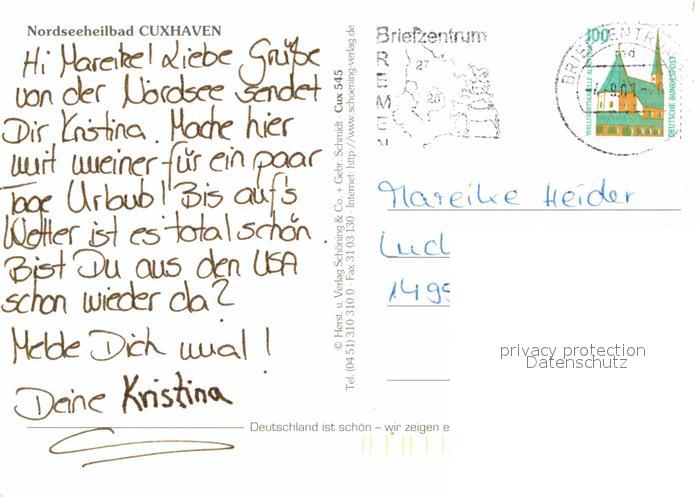 Nordseeheilbad CUXHAVEN
Hi Mareike! Liebe Grüße
von der Nordsee sendet
Dir Kristina. Mache hier
mit meiner für ein paar
Tage Urlaub! Bis auf's
Wetter ist es total schön.
Bist Du aus den USA
schon wieder da?
Melde Dich mal!
Deine Kristina
© Herst. u. Verlag Schöning & Co. + Gebr. Schmidt · Cux 545
Tel. (04 51) 310 310 0 · Fax 31 03 130 · Internet: http://www.schoening-verlag.de
Deutschland ist schön – wir zeigen e
Briefzentrum
BREMEN
27
28
BRIEFZENTRUM
100
DEUTSCHE BUNDESPOST
Mareike Heider
Lud
1495
privacy protection
Datenschutz